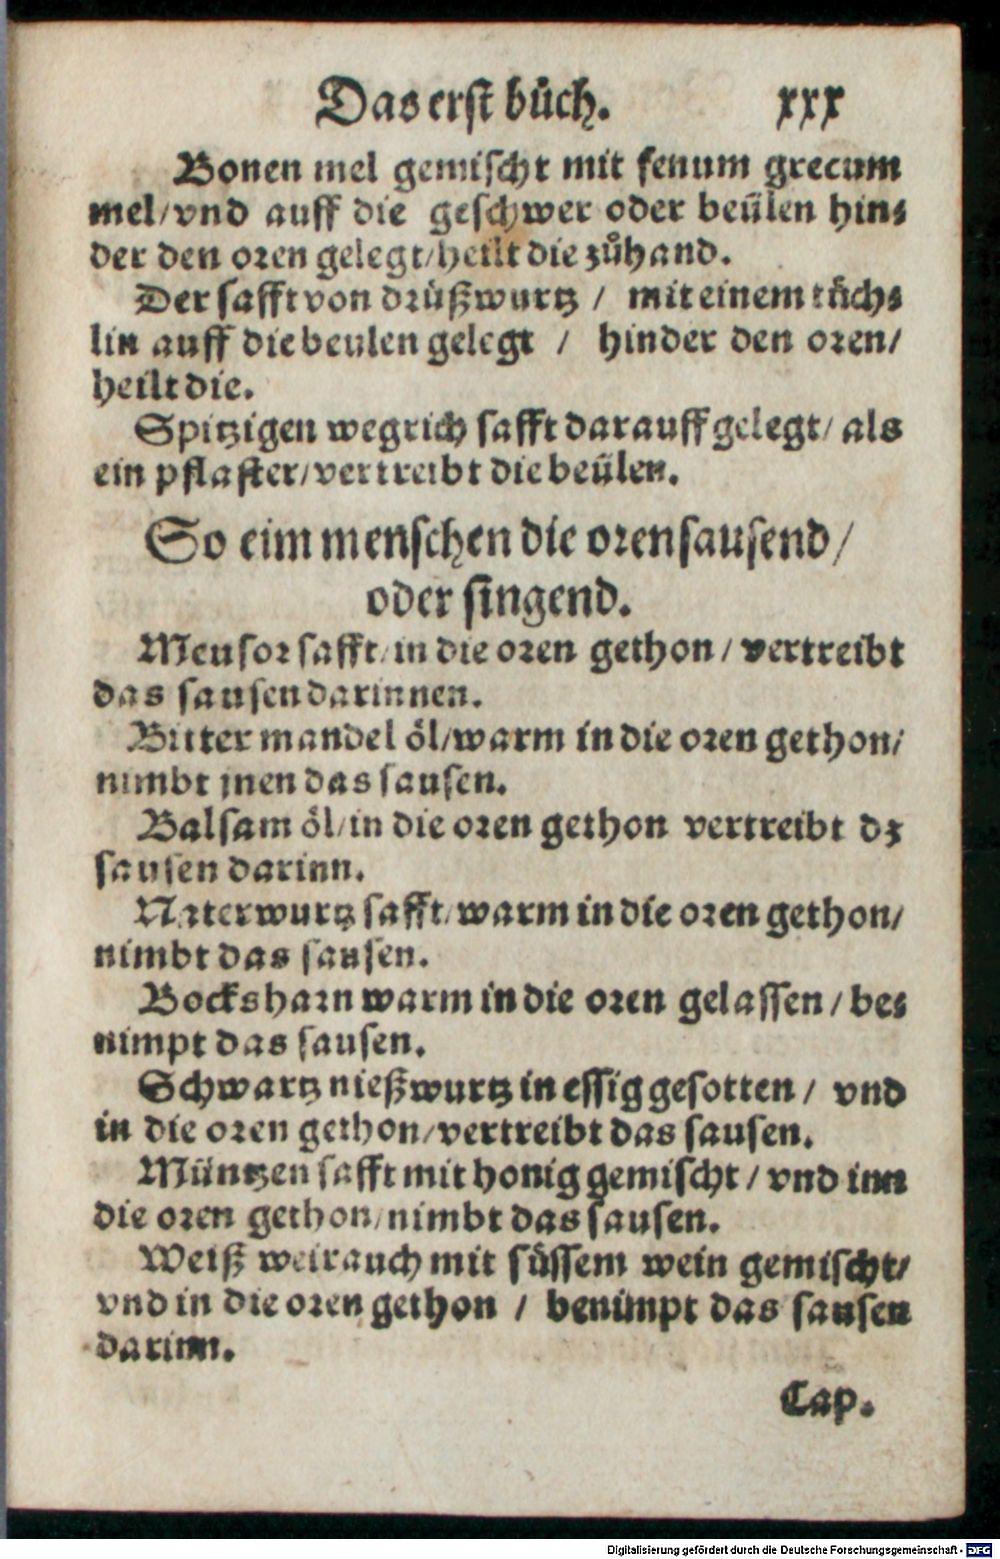 Das erst bůch. xxx
Bonen mel gemischt mit fenum grecum
mel/vnd auff die geschwer oder beülen hin⸗
der den oren gelegt/heilt die zůhand.
Der safft von drüßwurtz / mit einem tůch⸗
lin auff die beulen gelegt / hinder den oren/
heilt die.
Spitzigen wegrich safft darauff gelegt/ als
ein pflaster/vertreibt die beülen.
So eim menschen die oren sausend/
oder singend.
Meusor safft/in die oren gethon/vertreibt
das sausen darinnen.
Bitter mandel öl/warm in die oren gethon/
nimbt jnen das sausen.
Balsam öl/in die oren gethon vertreibt dz
sausen darinn.
Naterwurtz safft/warm in die oren gethon/
nimbt das sausen.
Bocksharn warm in die oren gelassen/be⸗
nimpt das sausen.
Schwartz nießwurtz in essig gesotten/ vnd
in die oren gethon/vertreibt das sausen.
Müntzen safft mit honig gemischt/vnd inn
die oren gethon/nimbt das sausen.
Weiß weirauch mit süssem wein gemischt/
vnd in die oren gethon / benimpt das sausen
darinn.
Cap.
Digitalisierung gefördert durch die Deutsche Forschungsgemeinschaft - DFG